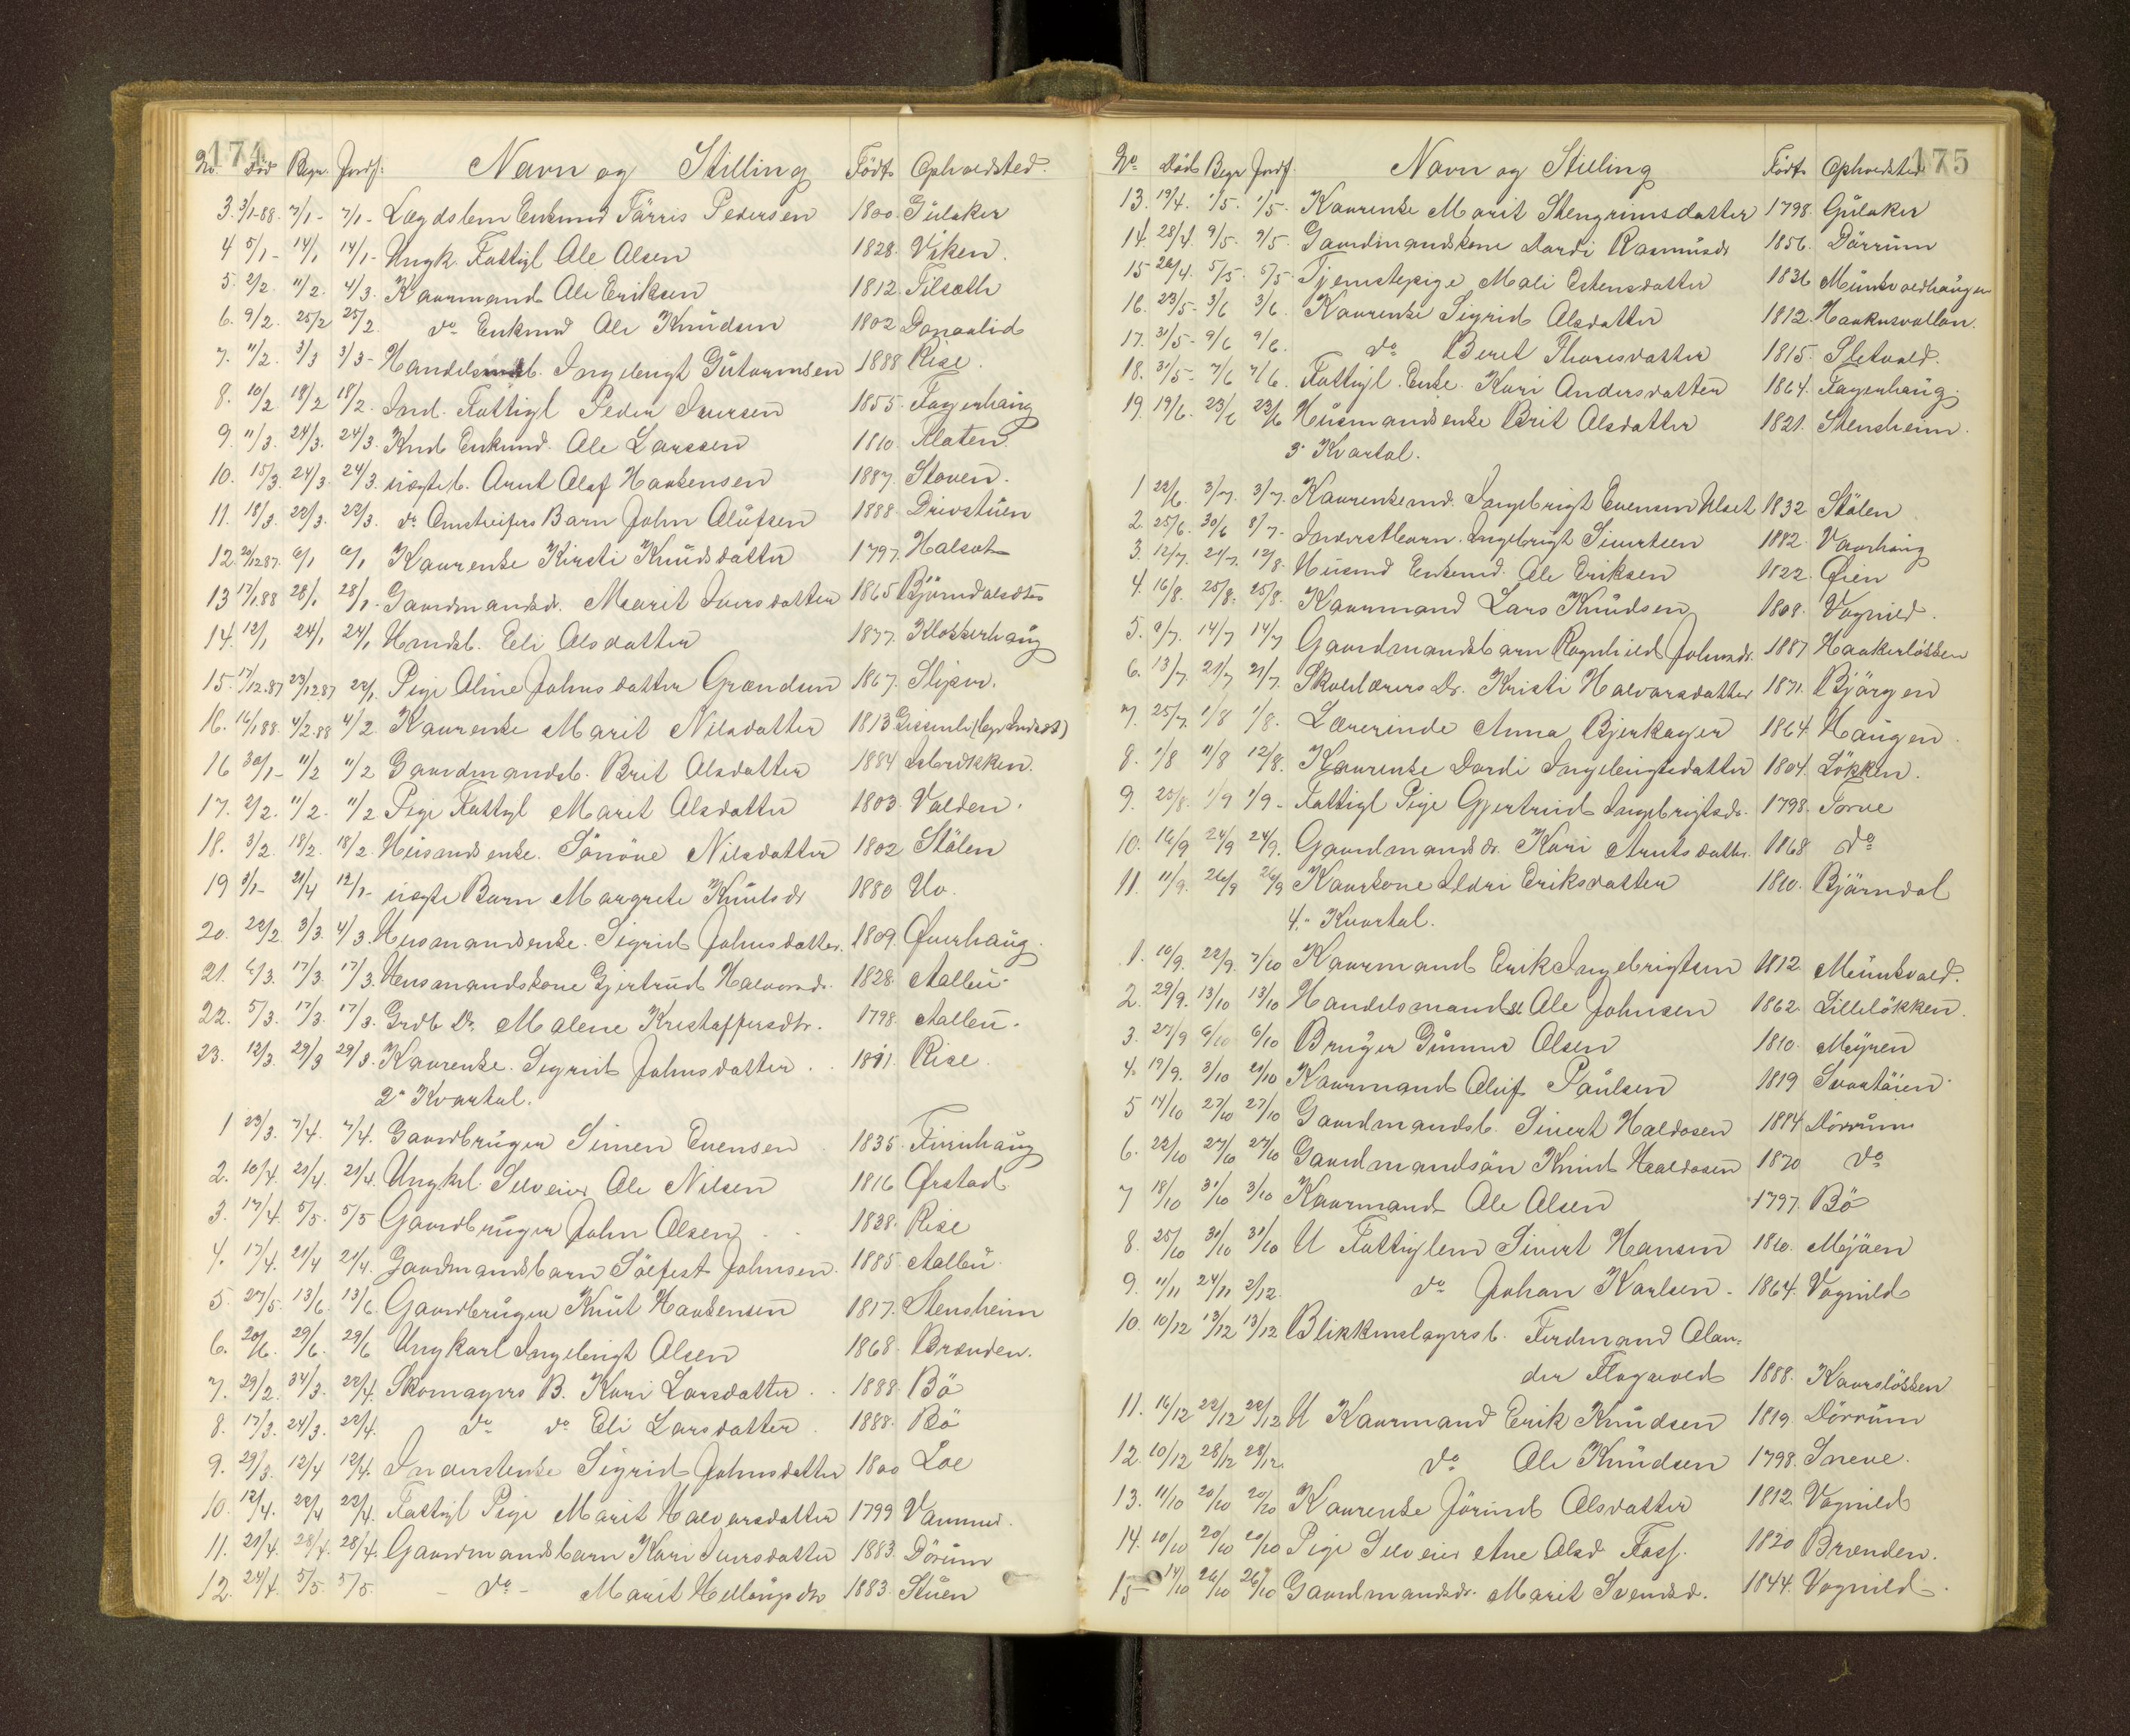 174
No. Död Begr. Jordf. Navn og Stilling Födt Opholdsted.
3. 3/1-88. 7/1- 7/1- Lægdslem Enkmd Tärris Pedersen 1800. Gulaker
4 5/1- 14/1 14/1- Ungk. Fattigl Ole Olsen 1828. Viken.
5. 2/2. 11/2. 4/3. Kaarmand Ole Eriksen 1812. Tilsæth
6. 9/2. 25/2 25/2. do Enkmd Ole Knudsen 1802
7. 11/2. 3/3 3/3- Ingebrigt Gutormsen 1888 Rise.
8. 10/2 18/2 18/2. Ind. Fattigl Peder Iversen 1855. Fagerhaug
9. 11/3. 24/3. 24/3. Enkmd. Ole Larssen 1810. Flaten.
10. 15/3. 24/3. 24/3. uægteb. Arnt Olaf Haakensen 1887. Stoven.
11. 18/3. 22/3. 22/3. do Barn John Olufsen 1888. Drivstuen
12 20/12 87. 6/1 6/1 Kaarenke Kirsti Knudsdatter 1797.
13 17/1 88 28/1 28/1. Gaardmandsdr. Maarit Iversdatter 1865
14. 12/1 24/1 24/1 Eli Olsdatter 1877. Klokkerhaug
15. 17/12 87 23/12 87 22/1. Pige Oline Johnsdatter Grændsen 1867.
16. 16/1 88. 4/2 88 4/2 Kaarenke Marit Nilsdatter 1813
16 30/1- 11/2 11/2 Gaardmandsb. Brit Olsdatter 1884
17. 2/2. 11/2. 11/2 Pige Fattigl Marit Olsdatter 1803. Valden.
18. 3/2. 18/2. 18/2. Husmdsenke. Sönöve Nilsdatter 1802 Stölen
19 3/1- 21/4 12/1- uægte Barn Margrete Knutsdr 1880 Uv.
20. 22/2 3/3. 4/3. Husmandsenke. Sigrid Johnsdatter. 1809. Qverhaug.
21. 6/3. 17/3. 17/3. Husmandskone Gjertrud Halvorsdr. 1828. Aalbu.
22. 5/3. 17/3. 17/3. Grdb Dr. Malene Kristoffersdtr. 1798. Aalbu.
23. 12/3. 29/3 29/3. Kaarenke. Sigrid Johnsdatter. Rise
2" Kvartal.
1 23/3. 7/4. 7/4. Gaardbruger Simen Evensen 1835. Furuhaug
2. 10/4. 21/4. 21/4. Ungkl. Selveier Ole Nilsen 1816 Ørstad
3. 17/4. 5/5. 5/5 Gaardbruger John Olsen 1828. Rise
4. 17/4. 21/4 21/4. Gaardmandsbarn Sölfest Johnsen. 1885 Aalbu
5. 27/5. 13/6. 13/6. Gaardbruger Knut Haakensen 1817. Stensheim
6. 20/6. 29/6. 29/6 Ungkarl Ingebrigt Olsen 1868. Brænden.
7. 29/2. 31/3. 22/4. Skomagers B. Kari Larsdatter 1888 Bö
8. 17/3. 24/3. 22/4. do do Eli Larsdatter 1888. Bö
9. 29/3. 12/4 12/4. Inderstenke Sigrid Johnsdatter 1800 Loe
10. 12/4. 22/4 22/4. Fattigl Pige Marit Halvorsdatter 1799
11. 21/4. 28/4. 28/4. Gaardmandsbarn Kari Iversdatter 1883. Dörum
12. 24/4. 5/5. 5/5. - do - Marit 1883. Stuen
175
No. Död Begr Jordf. Navn og Stilling Födt Opholdsted
13. 19/4. 1/5. 1/5. Kaarenke Marit Stengrimsdatter 1798. Gulaker
14. 28/4. 9/5. 9/5. Gaardmandskone Dordi Rasmusdr 1856. Dörrum
15 26/4. 5/5. 5/5. Tjenstepige Mali Estensdatter 1836 Munkvoldhaugen
16. 23/5- 3/6 3/6. Kaarenke Sigrid Olsdatter 1812.
17. 31/5- 9/6 9/6. do Beret Thoresdatter 1815. Sletvold.
18. 31/5- 7/6 7/6. Fattigl. Enke. Kari Andersdatter 1864. Fagerhaug.
19. 19/6. 23/6 23/6 Husmandsenke Brit Olsdatter 1821. Stensheim.
3" Kvartal.
1 22/6. 3/7. 3/7. Kaarenkemd. Ingebrigt Evensen Ulset 1832 Stölen
2. 25/6. 30/6 8/7- Inderstbarn. Ingebrigt Sivertsen 1882. Vaarhaug
3. 12/7. 24/7. 12/8. Husmd Enkemd. Ole Eriksen 1822. Øien
4. 16/8. 25/8. 25/8. Kaarmand Lars Knudsen 1808. Vognild.
5. 9/7. 14/7 14/7 Gaardmandsbarn Ragnhild Johnsdr. 1887 Haakerlökken
6. 13/7. 21/7 21/7. Skolelærers Dr. Kristi Halvorsdatter 1871. Bjärgen
7. 25/7. 1/8 1/8. Lærerinde Anna Bjerkager 1864 Haugen
8. 1/8 11/8 12/8. Kaarenke Dordi Ingebrigtsdatter 1804. Lökken.
9. 25/8. 1/9 1/9- Fattigl Pige Gjertrud Ingebrigtsdr. 1798. Torve
10. 16/9 24/9 24/9. Gaardmandsdr. Kari Arntsdatter. 1868 do
11. 11/9. 26/9 26/9 Kaarkone Ildri Eriksdatter 1810. Bjärndal
4" Kvartal.
1. 10/9. 22/9. 7/10 Kaarmand Erik Ingebrigtsen 1812. Munkvold.
2. 29/9. 13/10 13/10 Handelsmand Ole Johnsen 1862. Lillelökken.
3. 27/9 6/10 6/10 Bruger Gunnar Olsen 1810. Meyren
4. 19/9. 3/10 21/10 Kaarmand Oluf Paulsen 1819 Svartöien
5 14/10 27/10 27/10 Gaardmandsb. Sivert Haldosen 1884 Dörrum
6. 22/10 27/10 27/10 Gaardmandsön Knut Haldosen 1870 do
7 18/10 31/10 3/10 Kaarmand Ole Olsen 1797. Bö
8. 25/10 31/10 31/10 U Fattiglem Sivert Hansen 1810. Mejäen
9. 11/11 24/11 2/12. do Johan Karlsen. 1864. Vognild
10. 10/12 13/12 13/12 Blikkenslagersb. Ferdinand Alan-
der Flogvold 1888. Kaarslökken
11. 16/12 22/12 22/12 U Kaarmand Erik Knudsen 1819. Dörrum
12. 10/12 28/12 28/12. do Ole Knudsen 1798. Sneve.
13. 11/10 20/10 20/10 Kaarenke Jörund Olsdatter 1812. Vognild
14. 10/10 20/10 20/10 Pige Selveier Ane Olsd. 1820 Brænden.
15 14/10 26/10 26/10 Gaardmandsdr. Marit Svendsd. 1844. Vognild.